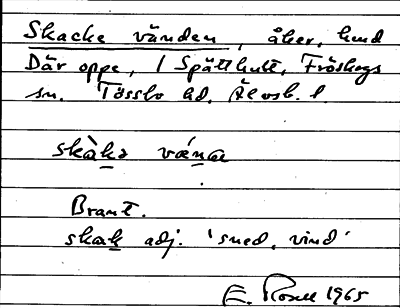 Skacke vänden, åker, hmd
Där oppe, 1 Spätthult, Fröskogs
sn. Tössbo hd. Älvsb. l.
skàkə vǽna
Brant.
skak adj. 'sned, vind'
E. Rosell 1965